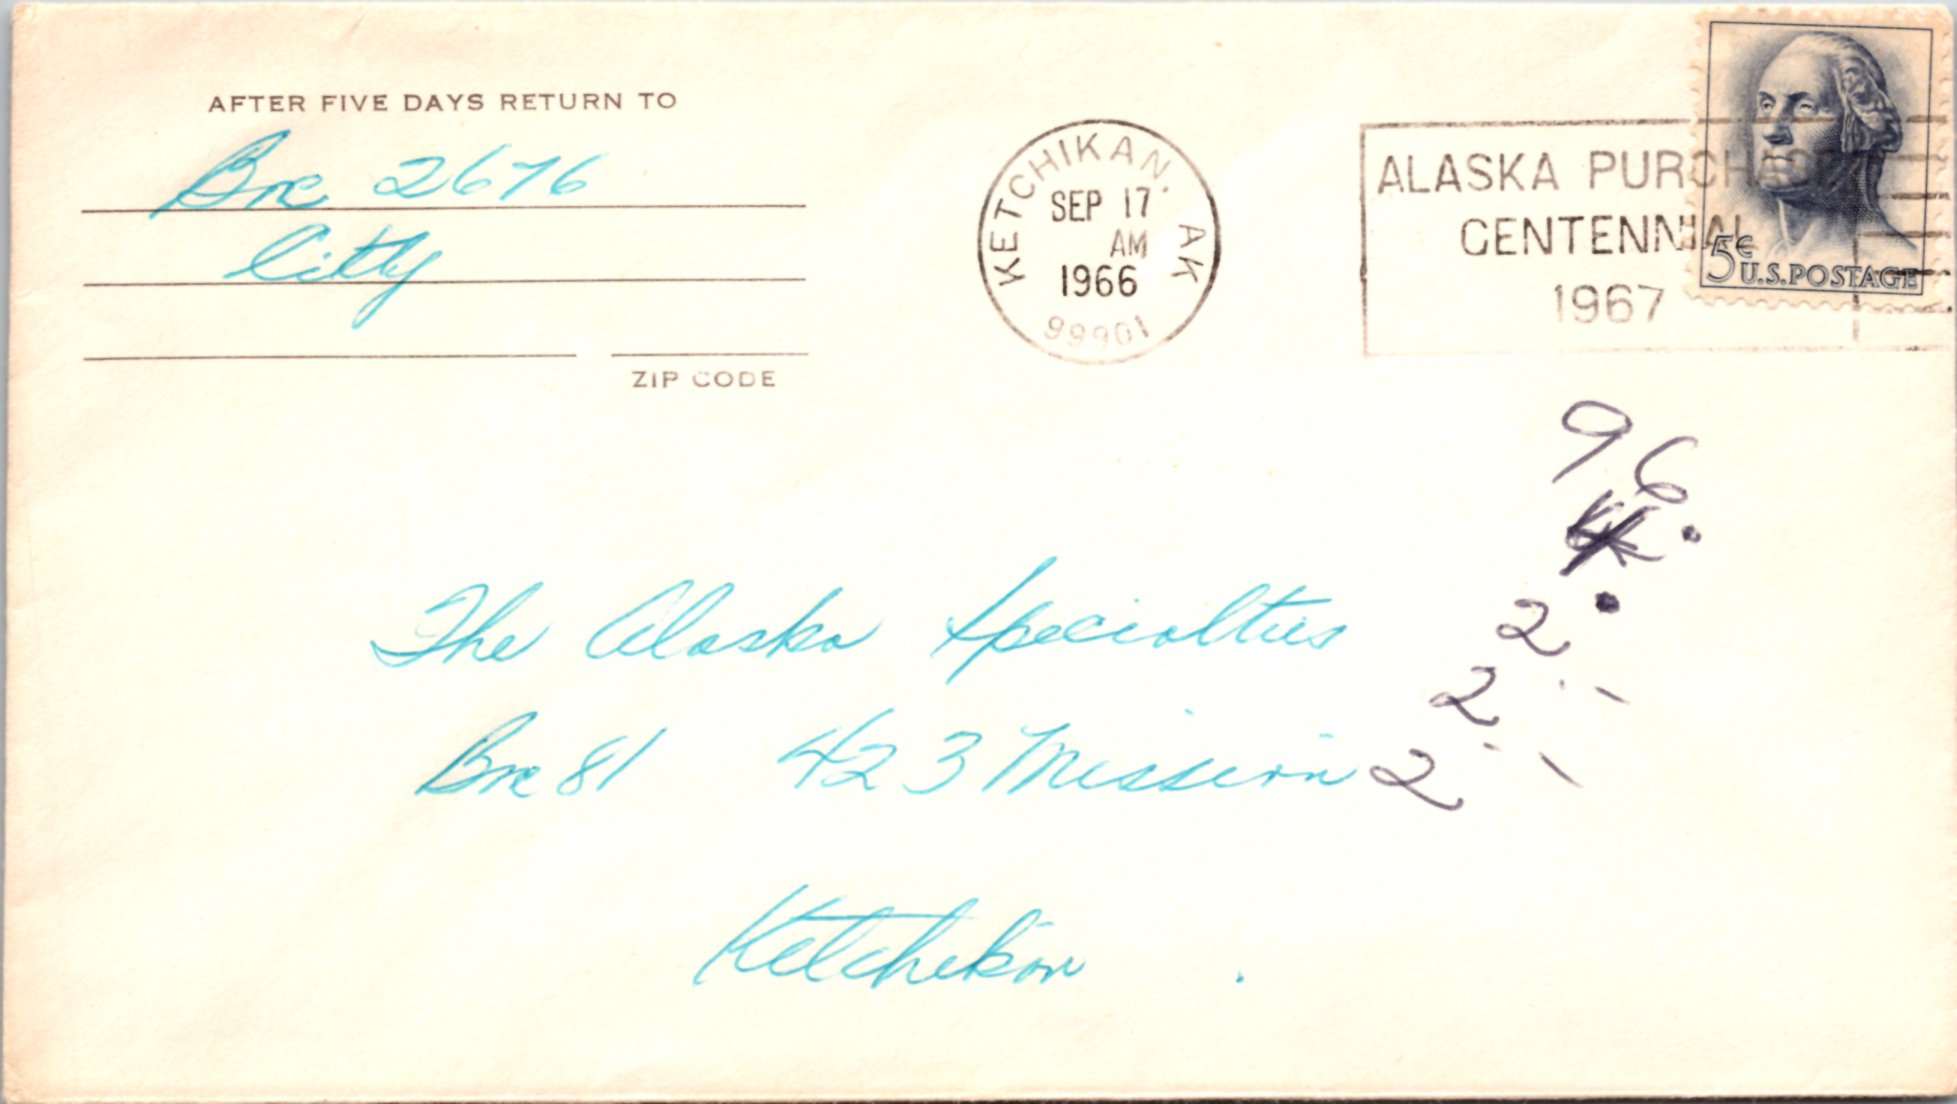 AFTER FIVE DAYS RETURN TO
Box 2676
City
ZIP CODE
KETCHIKAN, AK
SEP 17
AM
1966
99901
ALASKA PURCHASE
CENTENNIAL
1967
5¢
U.S.POSTAGE
96
2
2
2
The Alaska Specialties
Box 81 423 Mission
Ketchikan